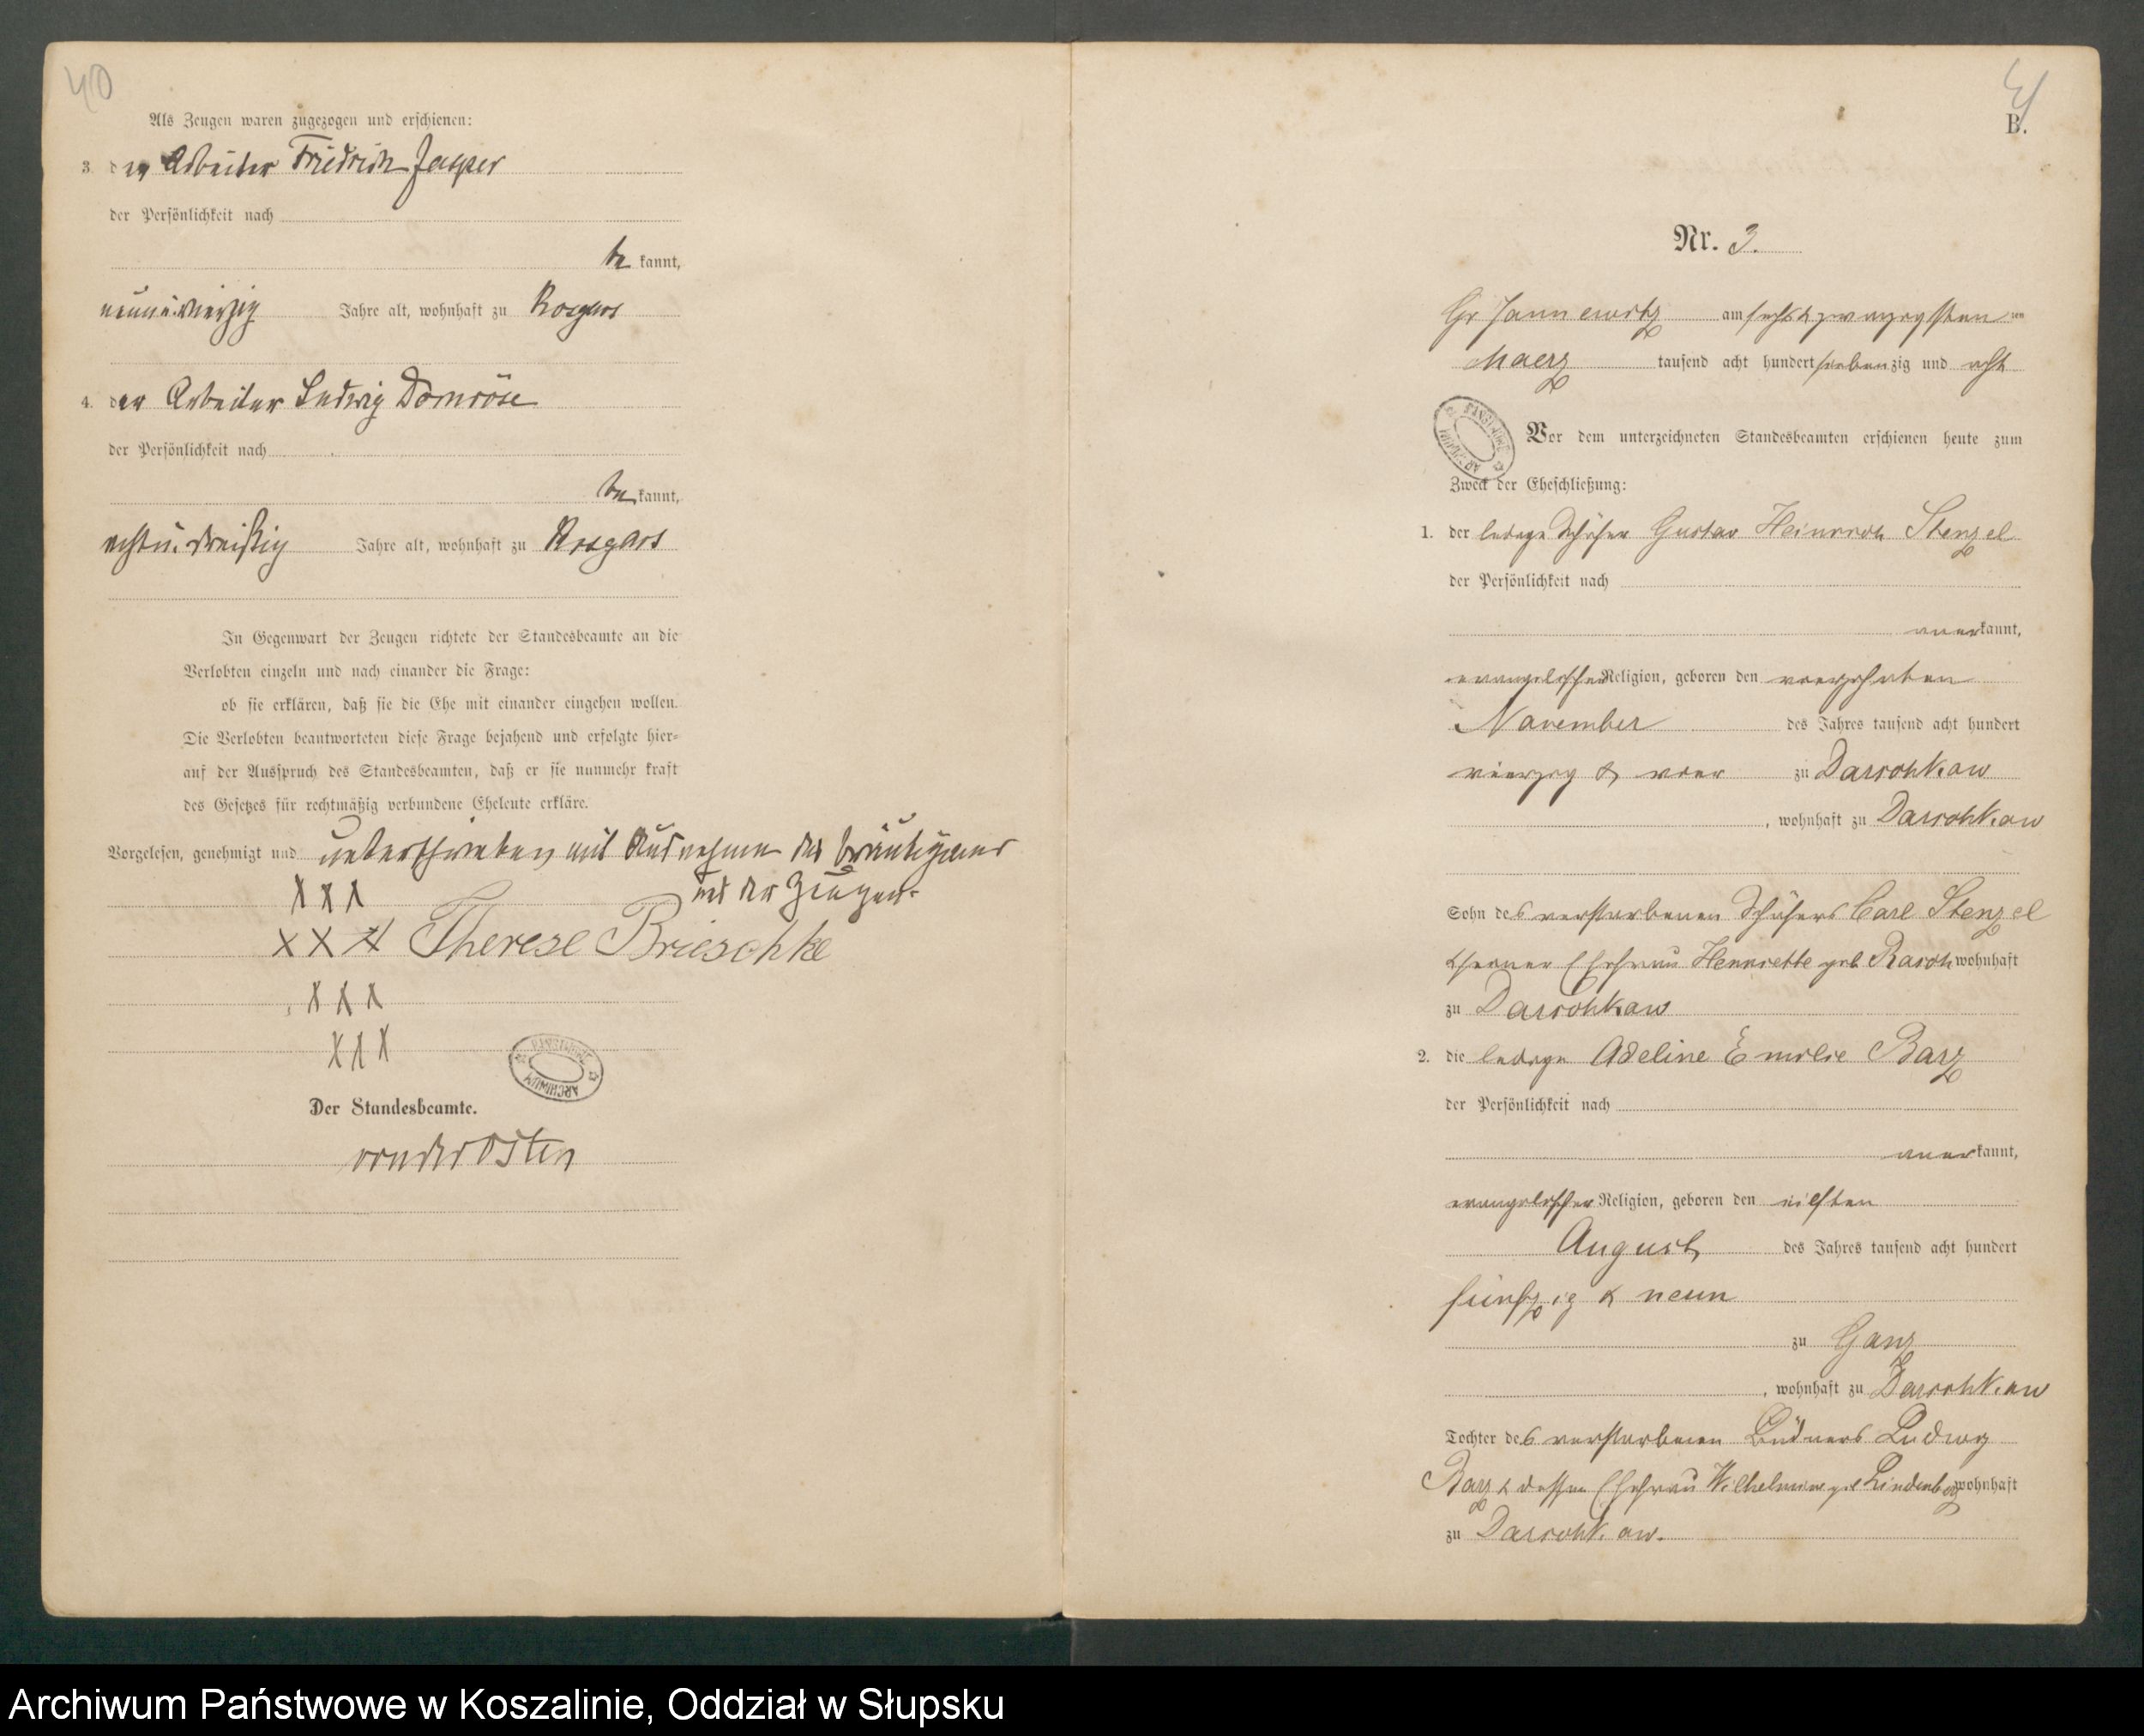 40
Als Zeugen waren zugezogen und erschienen:
3. der Arbeiter Friedrich Jasper
der Persönlichkeit nach
be kannt,
neunu.vierzig Jahre alt, wohnhaft zu Rosgars
4. der Arbeiter Ludwig Domröse
der Persönlichkeit nach
be kannt,
achtu.dreißig Jahre alt, wohnhaft zu Rosgars
In Gegenwart der Zeugen richtete der Standesbeamte an die
Verlobten einzeln und nach einander die Frage:
ob sie erklären, daß sie die Ehe mit einander eingehen wollen.
Die Verlobten beantworteten diese Frage bejahend und erfolgte hier-
auf der Ausspruch des Standesbeamten, daß er sie nunmehr kraft
des Gesetzes für rechtmäßig verbundene Eheleute erkläre.
Vorgelesen, genehmigt und unterschrieben mit Ausnahme des Bräutigams
XXX und der Zeugen.
XXX Therese Brieschke
XXX
XXX
ARCHIWUM
Der Standesbeamte.
von der Osten
41
B.
Nr. 3.
Gr Jannewitz am sechs & zwanzigsten
Maerz tausend acht hundert siebenzig und acht
Vor dem unterzeichneten Standesbeamten erschienen heute zum
Zweck der Eheschließung:
1. der ledige Schäfer Gustav Heinrich Stenzel
der Persönlichkeit nach
anerkannt,
evangelischer Religion, geboren den vierzehnten
November des Jahres tausend acht hundert
vierzig & vier zu Darschkow
, wohnhaft zu Darschkow
Sohn des verstorbenen Schäfers Carl Stenzel
& seiner Ehefrau Henriette geb Rasch wohnhaft
zu Darschkow
2. die ledige Adeline Emilie Barz
der Persönlichkeit nach
anerkannt,
evangelischer Religion, geboren den eilften
August des Jahres tausend acht hundert
fünfzig & neun
zu Ganz
, wohnhaft zu Darschkow
Tochter des verstorbenen Büdners Ludwig
Barz & dessen Ehefrau Wilhelmine geb Lindenberg wohnhaft
zu Darschkow.
Archiwum Państwowe w Koszalinie, Oddział w Słupsku